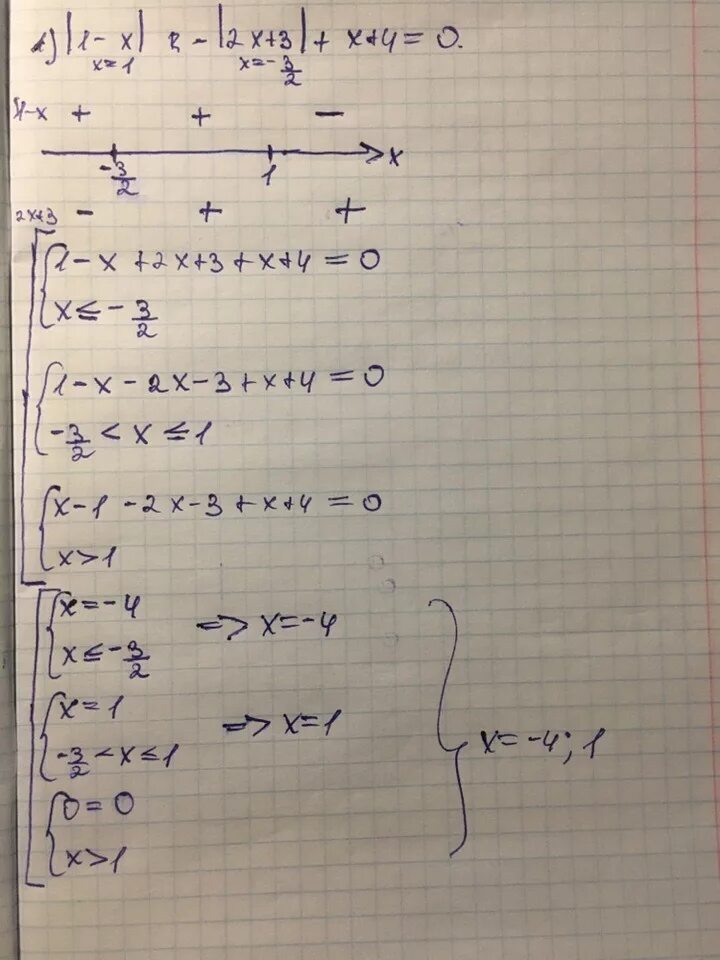 1) |1-x| - |2x+3| + x+4 = 0.
x=1 x=-3/2
1-x + + -
-3/2 1 x
2x+3 - + +
1-x+2x+3+x+4=0
x≤-3/2
1-x-2x-3+x+4=0
-3/2<x≤1
x-1-2x-3+x+4=0
x>1
x=-4 => x=-4
x≤-3/2
x=1 => x=1
-3/2<x≤1
x=-4; 1
0=0
x>1